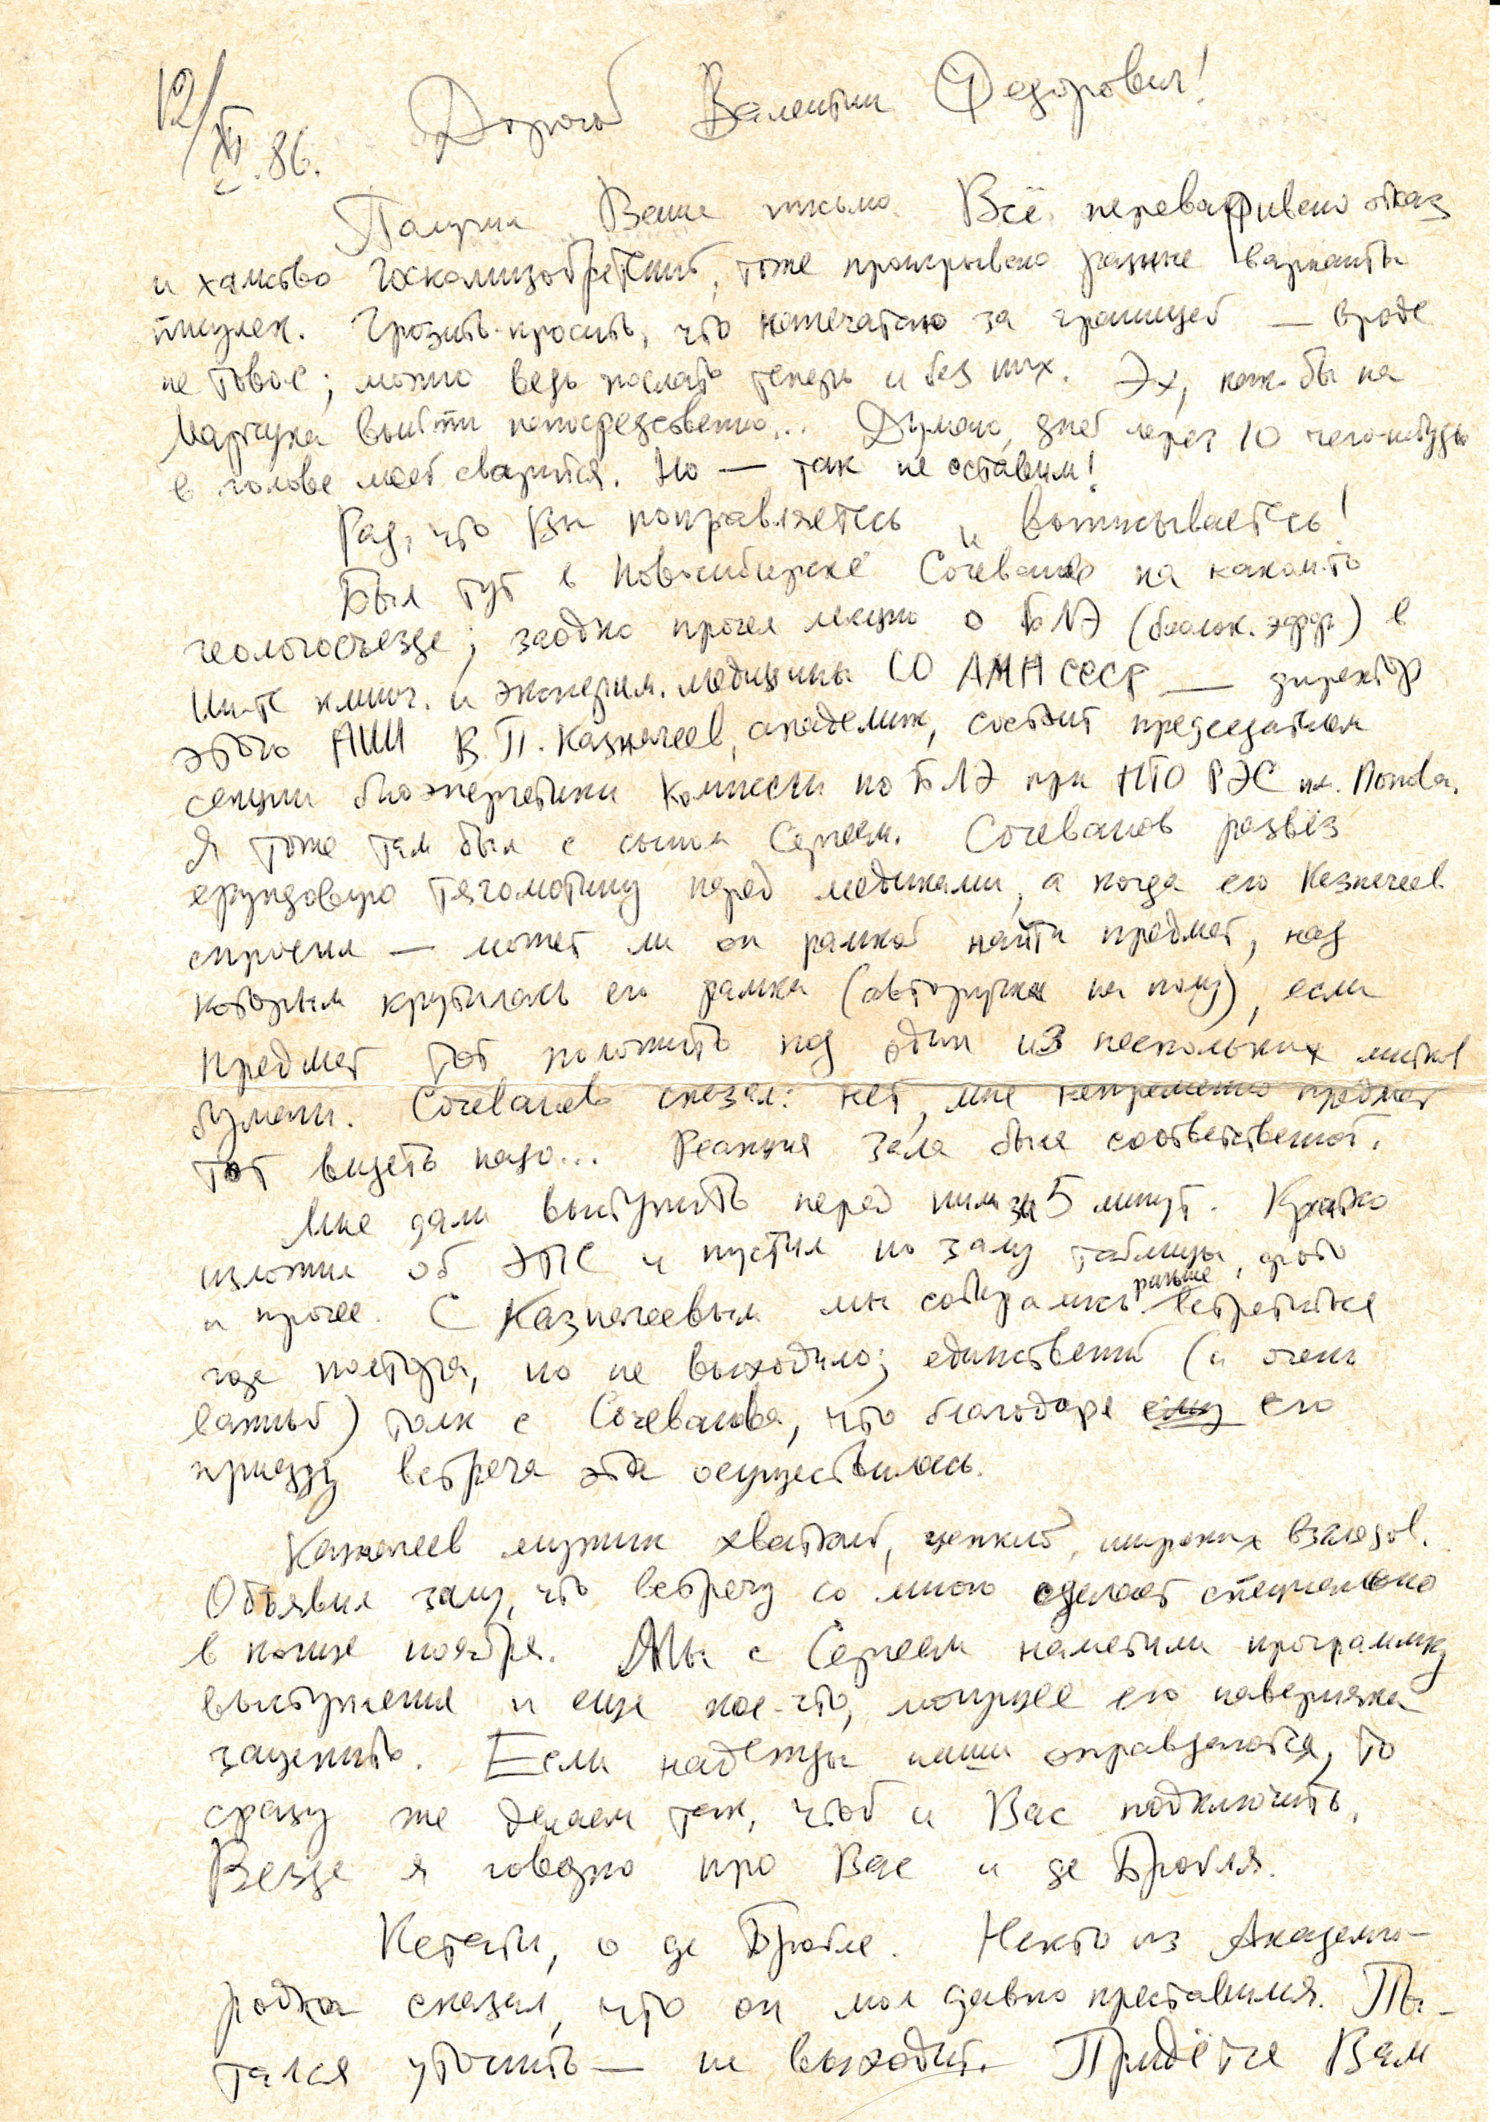 12/XI.86.
Дорогой Валентин Федорович!
Получил Ваше письмо. Всё перевариваю отказ
и хамство Госкомизобретений, тоже проигрываю разные варианты
писулек. Грозить-просить, что напечатаю за границей — вроде
не тово-с; можно ведь послать теперь и без них. Эх, как бы на
Марчука выйти непосредственно... Думаю, дней через 10 чего-нибудь
в голове моей сварится. Но — так не оставим!
Рад, что Вы поправляетесь и выписываетесь!
Был тут в Новосибирске Сочеванов на каком-то
геологосъезде; заодно прочел лекцию о БЛЭ (биолок. эффр) в
Ин-те клинич. и эксперим. медицины СО АМН СССР — директор
этого НИИ В.П. Казначеев, академик, состоит председателем
секции биоэнергетики Комиссии по БЛЭ при НТО РЭС им. Попова.
Я тоже там был с сыном Сергеем. Сочеванов развёз
ерундовую тягомотину перед медиками, а когда его Казначеев
спросил — может ли он рамкой найти предмет, над
которым крутилась его рамка (авторучка на полу), если
предмет тот положить под один из нескольких листков
бумаги. Сочеванов сказал: нет, мне непременно предмет
тот видеть надо... Реакция зала была соответственной.
Мне дали выступить перед ним за 5 минут. Кратко
изложил об ЭПС и пустил по залу таблицы, фото
и прочее. С Казначеевым мы собирались раньше встретиться
года полтора, но не выходило; единственный (и очень
важный) толк с Сочеванова, что благодаря ему его
приезду встреча эта осуществилась.
Казначеев мужик хваткий, цепкий, широких взглядов.
Объявил залу, что встречу со мною сделает специально
в конце ноября. Мы с Сергеем наметили программку
выступления и еще кое-что, могущее его наверняка
зацепить. Если надежды наши оправдаются, то
сразу же делаем так, чтоб и Вас подключить.
Везде я говорю про Вас и де Бройля.
Кстати, о де Бройле. Некто из Академго-
родка сказал, что он мол давно преставился. Пы-
тался уточнить — не выходит. Придётся Вам